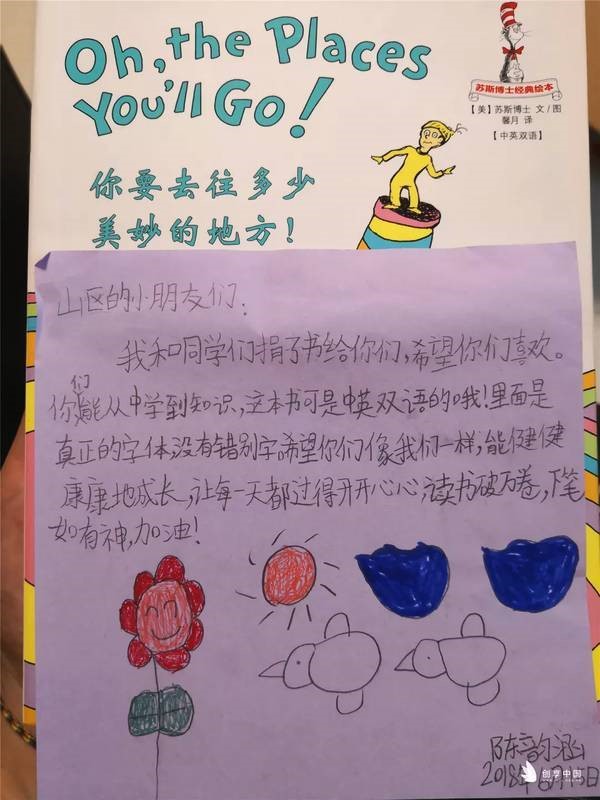 Oh, the Places
You'll Go!
苏斯博士经典绘本
【美】苏斯博士 文/图
馨月 译
【中英双语】
你要去往多少
美妙的地方!
山区的小朋友们:
我和同学们捐了书给你们,希望你们喜欢。
你们能从中学到知识,这本书可是中英双语的哦!里面是
真正的字体,没有错别字希望你们像我们一样,能健健
康康地成长,让每一天都过得开开心心,读书破万卷,下笔
如有神,加油!
陈韵涵
2018年
创享中国